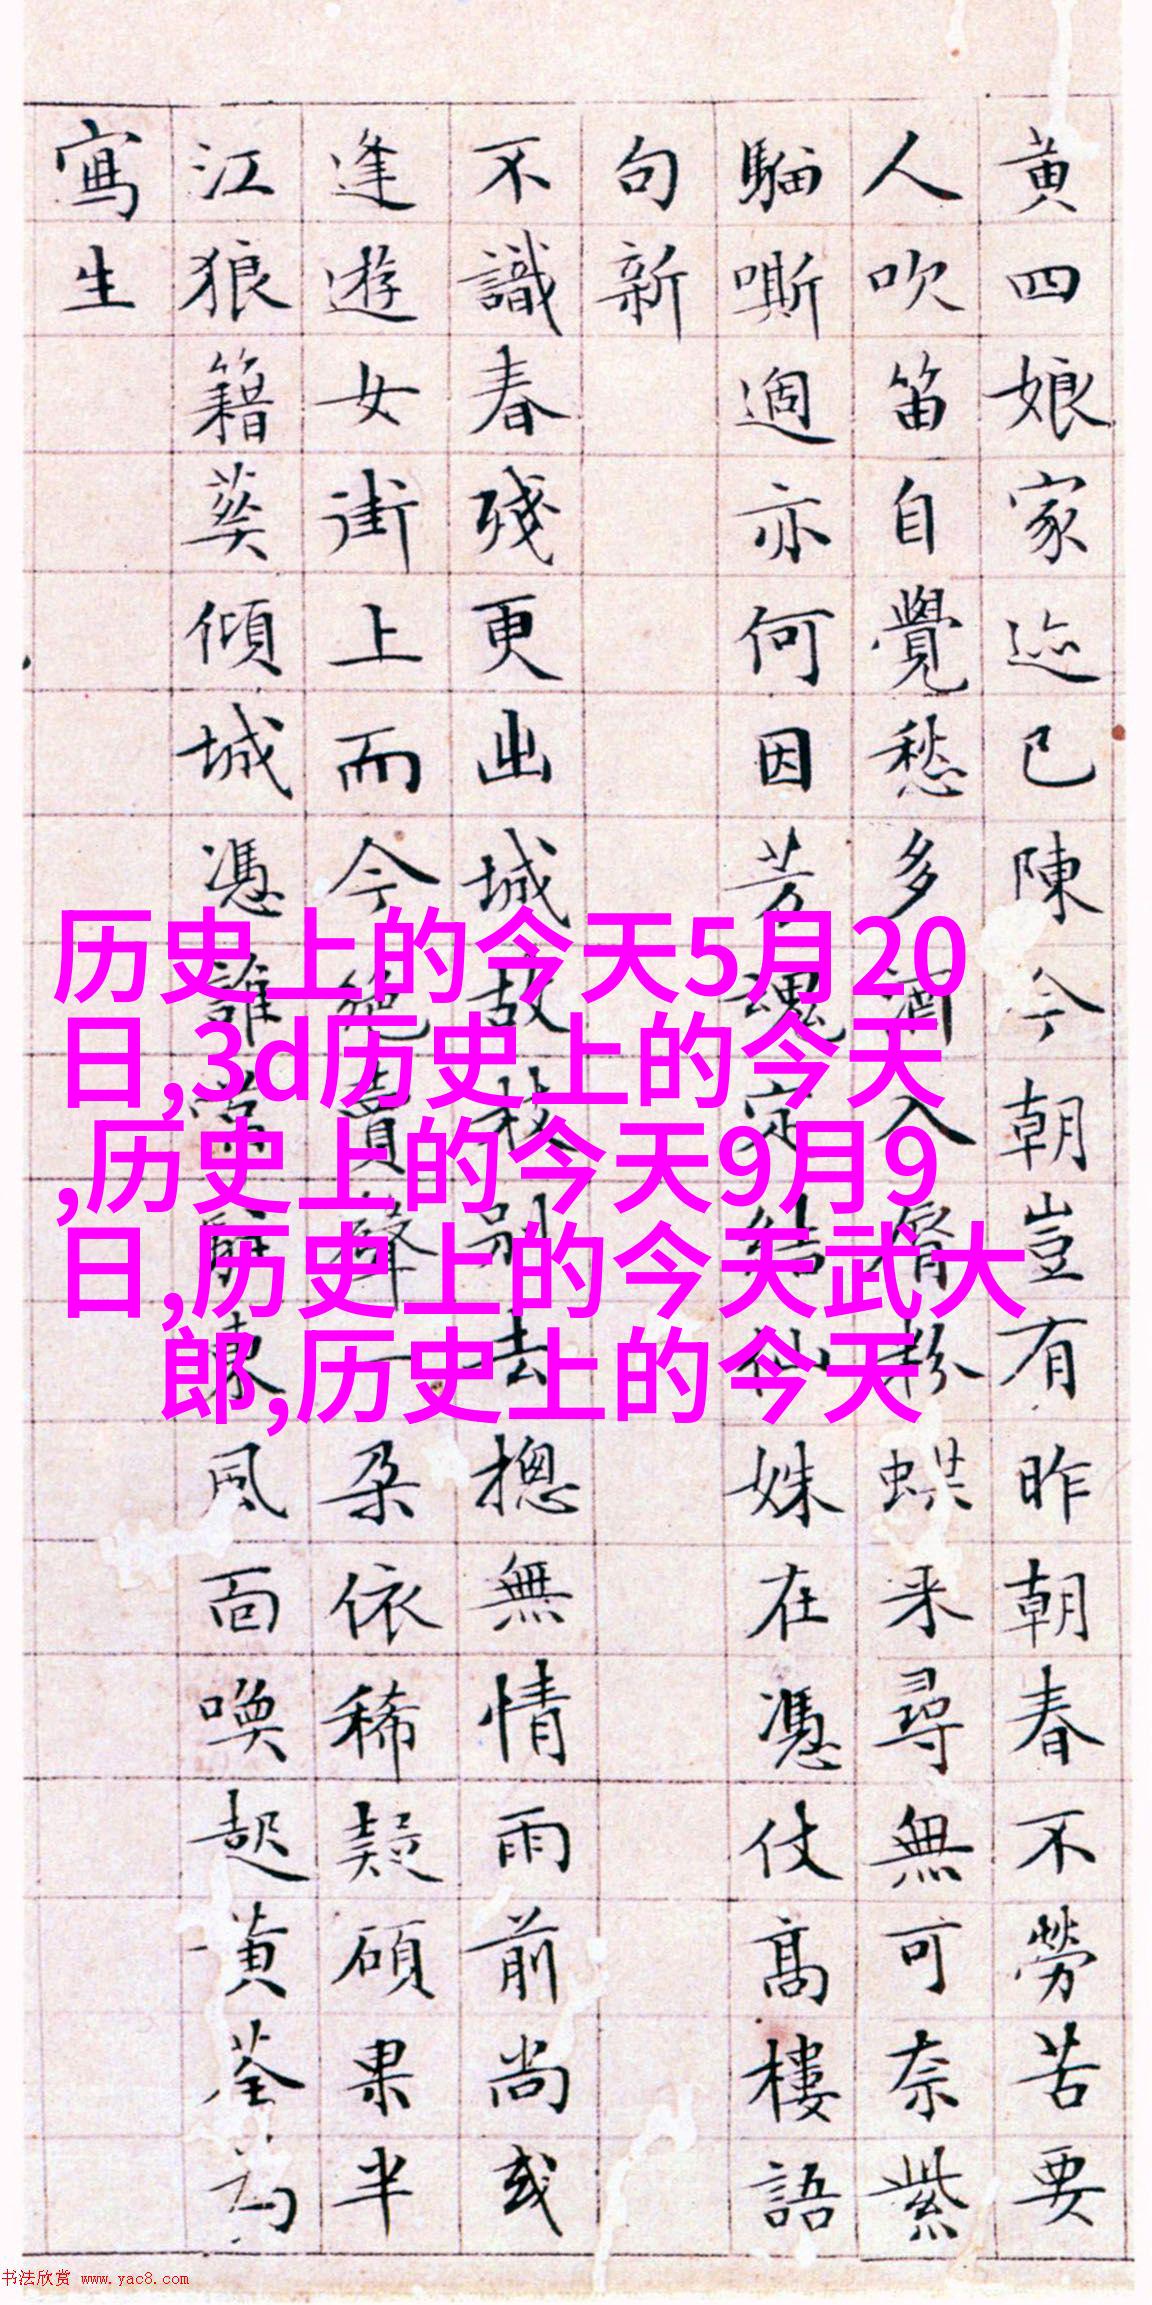 黄四娘家迹已陳今朝豈有昨朝春不勞苦要
人吹笛自覺愁多酒入脣粉蝶来尋無可奈紫
騮嘶過亦何因芳魂定結仙姝在憑仗髙樓語
句新
不識春殘更出城故枝别去摠無情雨前尚或
逢遊女街上而今絶賣聲一朵依稀疑碩果半
江狼籍葬傾城憑誰東風面喚起黄荃為
寫生
历史上的今天5月20
日,3d历史上的今天
,历史上的今天9月9
日,历史上的今天武大
郎,历史上的今天
书法欣赏 www.yac8.com